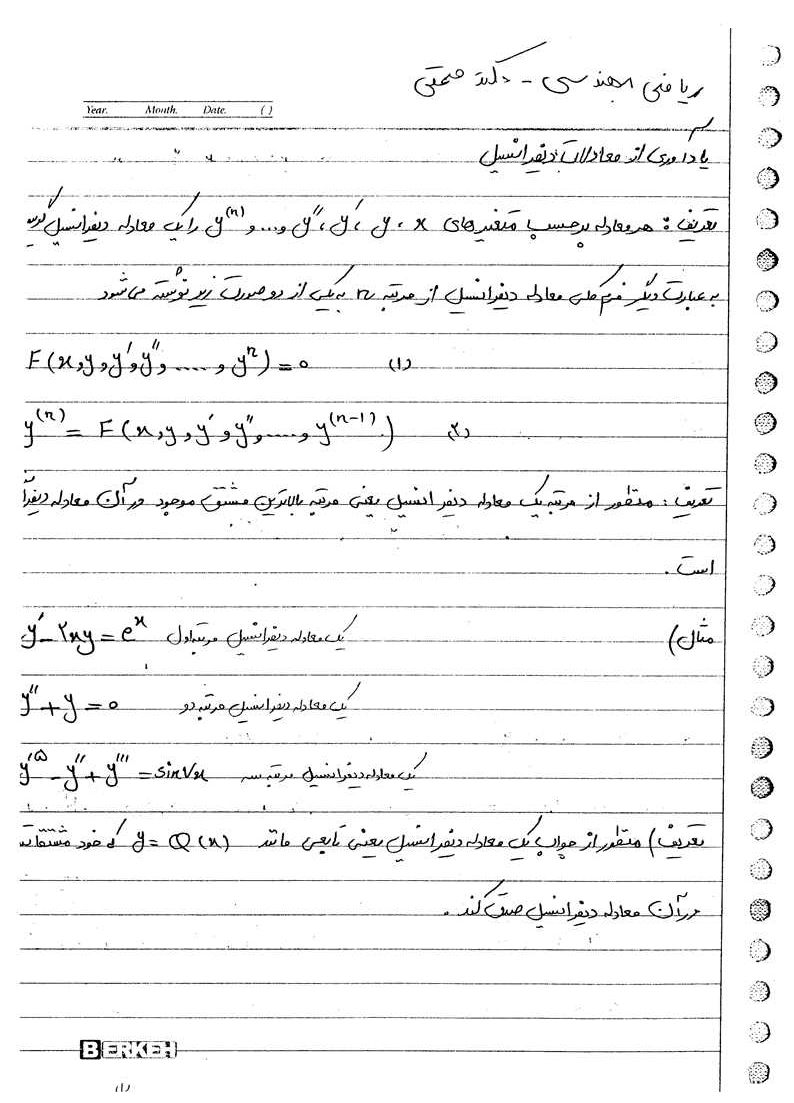 ریاضی مهندسی - دکتر همتی
Year. Month. Date. ( )
یادآوری از معادلات دیفرانسیل
تعریف : هر معادله برحسب متغیرهای x ، y ، y′ ، y″ و ... و y⁽ⁿ⁾ را یک معادله دیفرانسیل گویند
به عبارت دیگر فرم کلی معادله دیفرانسیل از مرتبه n به یکی از دو صورت زیر نوشته می شود
F(x و y و y′ و y″ و ..... و yⁿ) = 0 (۱)
y⁽ⁿ⁾ = F(x و y و y′ و y″ و ..... و y⁽ⁿ⁻¹⁾) (۲)
تعریف : منظور از مرتبه یک معادله دیفرانسیل یعنی مرتبه بالاترین مشتق موجود در آن معادله
است .
مثال) y′ - ۲xy = eˣ یک معادله دیفرانسیل مرتبه اول
y″ + y = 0 یک معادله دیفرانسیل مرتبه دو
y′^۵ - y″ + y‴ = sin۷x یک معادله دیفرانسیل مرتبه سه
تعریف) منظور از جواب یک معادله دیفرانسیل یعنی تابعی مانند y = Q(x) که خود مشتقات
در آن معادله دیفرانسیل صدق کند .
BERKEH
(۱)